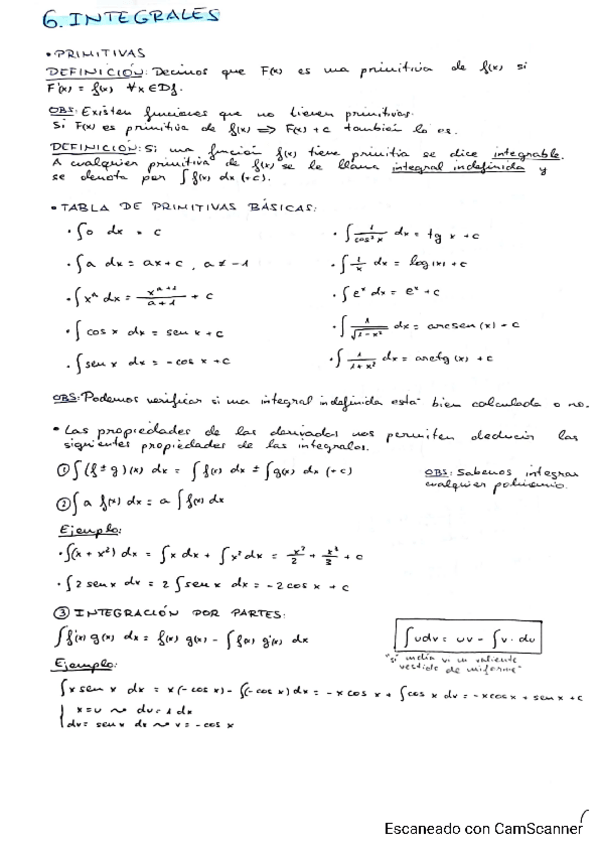 6. INTEGRALES
• PRIMITIVAS
DEFINICIÓN: Decimos que F(x) es una primitiva de f(x) si
F'(x) = f(x) ∀x ∈ Df.
OBS: Existen funciones que no tienen primitivas.
Si F(x) es primitiva de f(x) ⟹ F(x) + c también lo es.
DEFINICIÓN: Si una función f(x) tiene primitiva se dice integrable.
A cualquier primitiva de f(x) se le llama integral indefinida y
se denota por ∫ f(x) dx (+c).
• TABLA DE PRIMITIVAS BÁSICAS:
· ∫ 0 dx = c
· ∫ a dx = ax + c , a ≠ -1
· ∫ x^a dx = x^(a+1)/(a+1) + c
· ∫ cos x dx = sen x + c
· ∫ sen x dx = -cos x + c
· ∫ 1/cos² x dx = tg x + c
· ∫ 1/x dx = log |x| + c
· ∫ e^x dx = e^x + c
· ∫ 1/√(1-x²) dx = arcsen (x) + c
· ∫ 1/(1+x²) dx = arctg (x) + c
OBS: Podemos verificar si una integral indefinida está bien calculada o no.
• Las propiedades de las derivadas nos permiten deducir las
siguientes propiedades de las integrales.
① ∫ (f ± g)(x) dx = ∫ f(x) dx ± ∫ g(x) dx (+c)
② ∫ a f(x) dx = a ∫ f(x) dx
OBS: Sabemos integrar
cualquier polinomio.
Ejemplo:
· ∫ (x + x²) dx = ∫ x dx + ∫ x² dx = x²/2 + x³/3 + c
· ∫ 2 sen x dx = 2 ∫ sen x dx = -2 cos x + c
③ INTEGRACIÓN POR PARTES:
∫ f'(x) g(x) dx = f(x) g(x) - ∫ f(x) g'(x) dx
∫ u dv = uv - ∫ v · du
vestido de uniforme"
Ejemplo:
∫ x sen x dx = x(-cos x) - ∫ (-cos x) dx = -x cos x + ∫ cos x dx = -x cos x + sen x + c
x = u ⇝ du = 1 dx
dv = sen x dx ⇝ v = -cos x
Escaneado con CamScanner